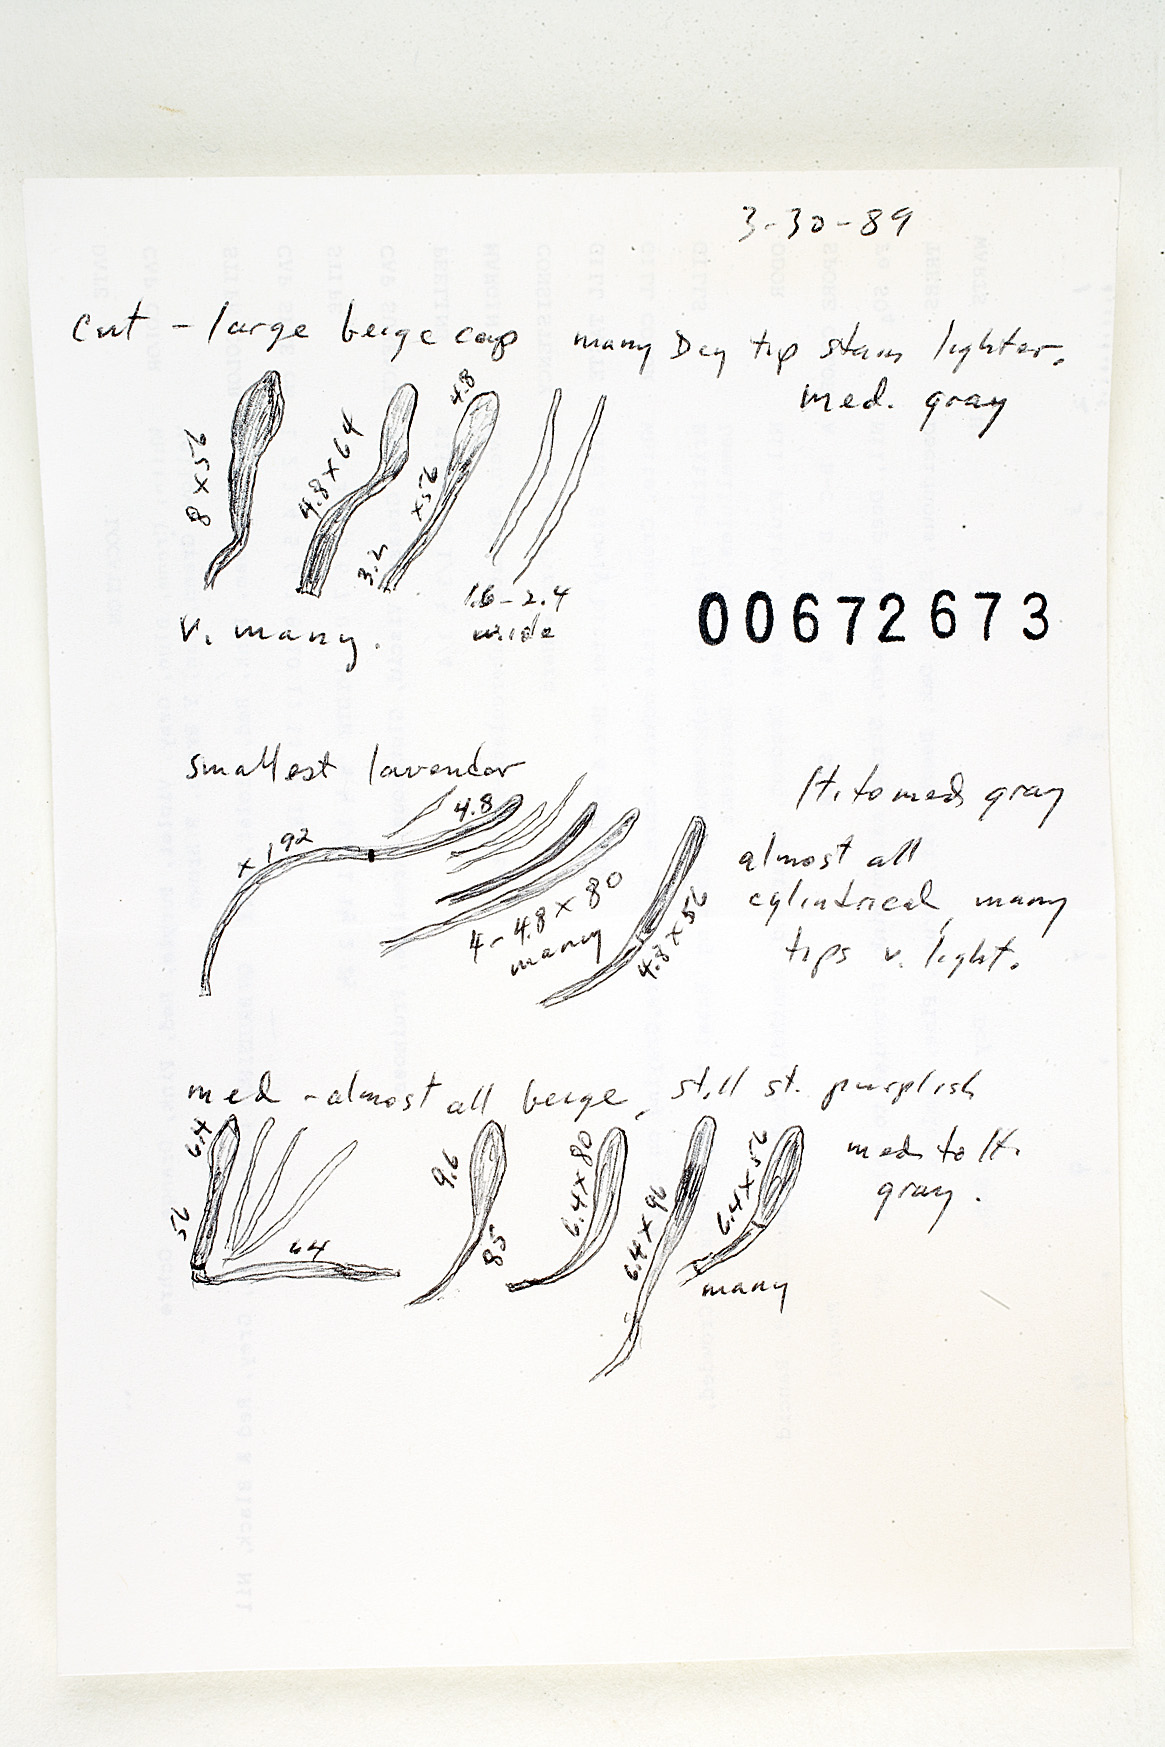 3-30-89
cut - large beige cap many Dcy tip stain lighter.
med. gray
8 x 56
4.8 x 64
4.8
x 56
3.2
1.6 - 2.4
wide
v. many.
00672673
smallest lavendar
lt. to med gray
4.8
x 192
almost all
cylindrical, many
tips v. light.
4 - 4.8 x 80
many
4.8 x 56
med - almost all beige, still st. purplish
med to lt.
gray.
6.4
56
64
9.6
85
6.4 x 80
6.4 x 96
6.4 x 56
many